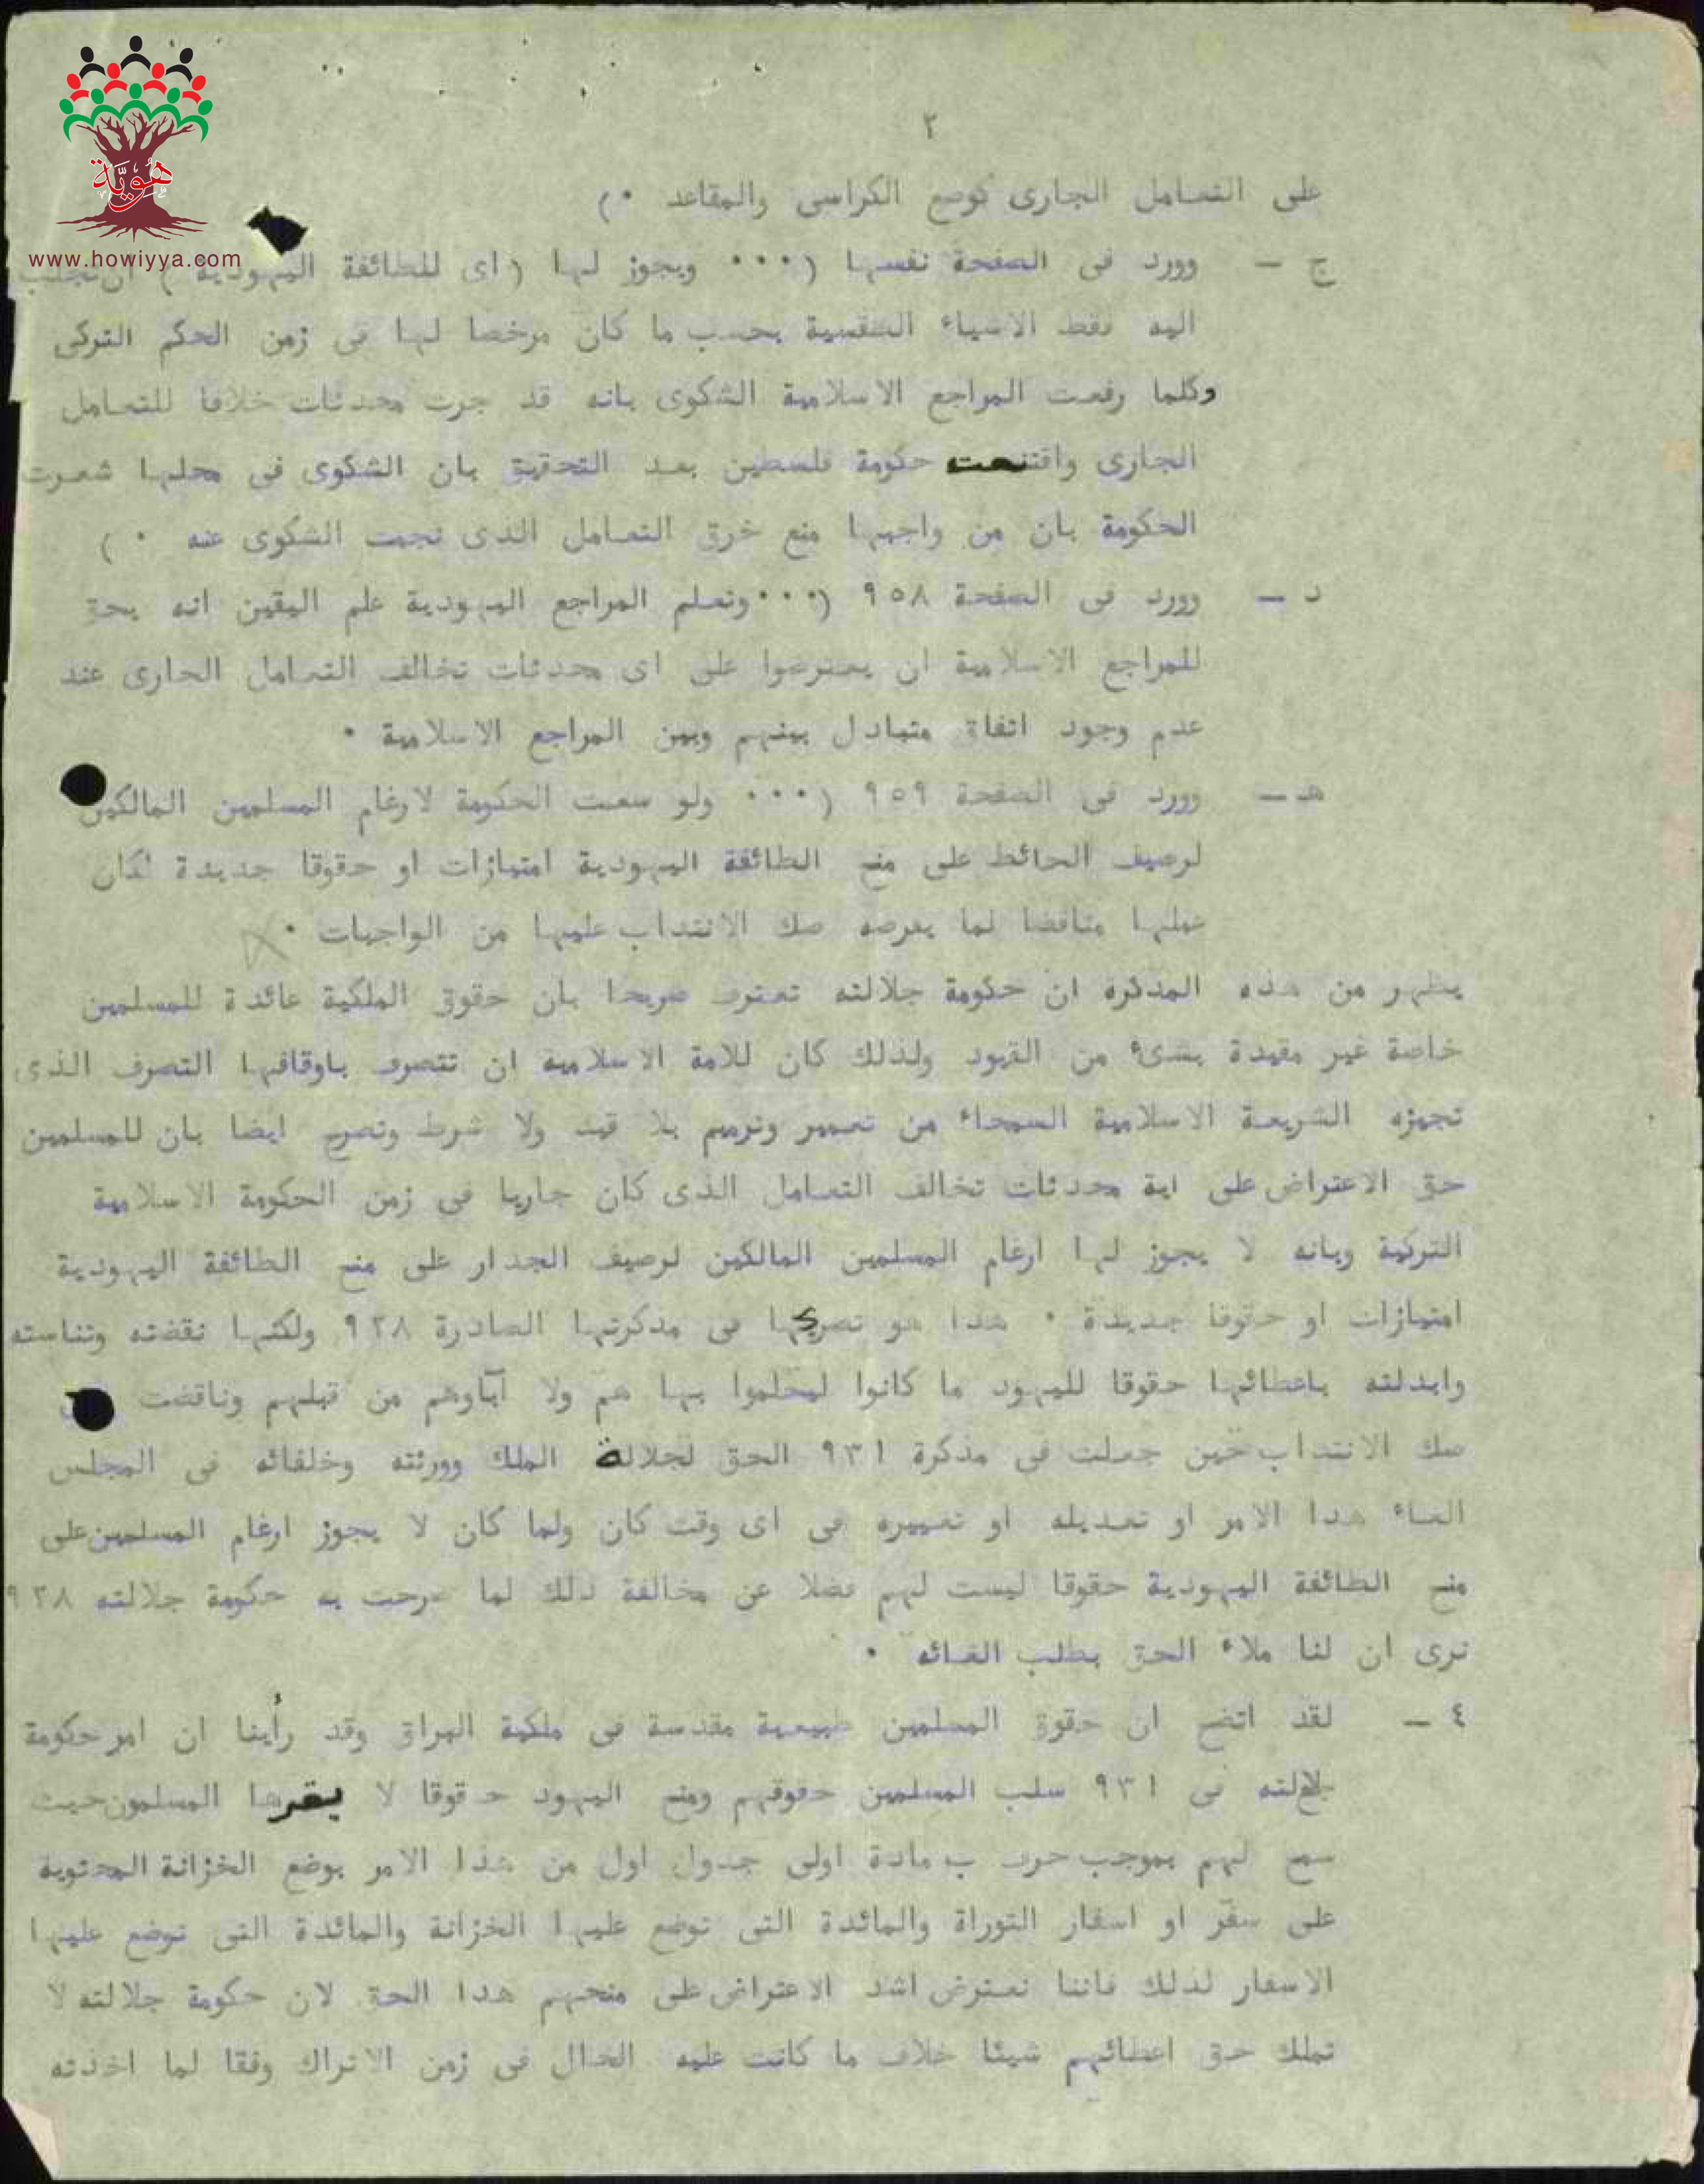 هُوِيَّة
www.howiyya.com
٢
على التعامل الجارى كوضع الكراسى والمقاعد ٠)
ج – وورد فى الصفحة نفسها (٠٠٠ ويجوز لها (اى للطائفة اليهودية) ان تجلب
اليه فقط الاشياء الطقسية بحسب ما كان مرخصا لها فى زمن الحكم التركى
وكلما رفعت المراجع الاسلامية الشكوى بانه قد جرت محدثات خلافا للتعامل
الجارى واقتنعت حكومة فلسطين بعد التحقيق بان الشكوى فى محلها شعرت
الحكومة بان من واجبها منع خرق التعامل الذى نجمت الشكوى عنه ٠ )
د – وورد فى الصفحة ٩٥٨ (٠٠٠ وتعلم المراجع اليهودية علم اليقين انه يحق
للمراجع الاسلامية ان يعترضوا على اى محدثات تخالف التعامل الجارى عند
عدم وجود اتفاق متبادل بينهم وبين المراجع الاسلامية ٠
هـ – وورد فى الصفحة ٩٥٩ (٠٠٠ ولو سعت الحكومة لارغام المسلمين المالكين
لرصيف الحائط على منح الطائفة اليهودية امتيازات او حقوقا جديدة لكان
عملها مناقضا لما يفرضه صك الانتداب عليها من الواجبات ٠
يظهر من هذه المذكرة ان حكومة جلالته تعترف صريحا بان حقوق الملكية عائدة للمسلمين
خاصة غير مقيدة بشىء من القيود ولذلك كان للامة الاسلامية ان تتصرف باوقافها التصرف الذى
تجيزه الشريعة الاسلامية السمحاء من تعمير وترميم بلا قيد ولا شرط وتصرح ايضا بان للمسلمين
حق الاعتراض على اية محدثات تخالف التعامل الذى كان جاريا فى زمن الحكومة الاسلامية
التركية وبانه لا يجوز لها ارغام المسلمين المالكين لرصيف الجدار على منح الطائفة اليهودية
امتيازات او حقوقا جديدة ٠ هذا هو تصريحها فى مذكرتها الصادرة ٩٢٨ ولكنها نقضته وتناسته
وابدلته باعطائها حقوقا لليهود ما كانوا ليحلموا بها هم ولا آباوهم من قبلهم وناقضت
صك الانتداب حين جعلت فى مذكرة ٩٣١ الحق لجلالة الملك وورثته وخلفائه فى المجلس
الغاء هذا الامر او تعديله او تغييره فى اى وقت كان ولما كان لا يجوز ارغام المسلمين على
منح الطائفة اليهودية حقوقا ليست لهم فضلا عن مخالفة ذلك لما صرحت به حكومة جلالته ٩٢٨
نرى ان لنا ملاء الحق بطلب الغائه ٠
٤ – لقد اتضح ان حقوق المسلمين طبيعية مقدسة فى ملكية البراق وقد رأينا ان امر حكومة
جلالته فى ٩٣١ سلب المسلمين حقوقهم ومنح اليهود حقوقا لا يقرها المسلمون حيث
سمح لهم بموجب حرف ب مادة اولى جدول اول من هذا الامر بوضع الخزانة المحتوية
على سفر او اسفار التوراة والمائدة التى توضع عليها الخزانة والمائدة التى توضع عليها
الاسفار لذلك فاننا نعترض اشد الاعتراض على منحهم هذا الحق لان حكومة جلالته لا
تملك حق اعطائهم شيئا خلاف ما كانت عليه الحال فى زمن الاتراك وفقا لما اخذته